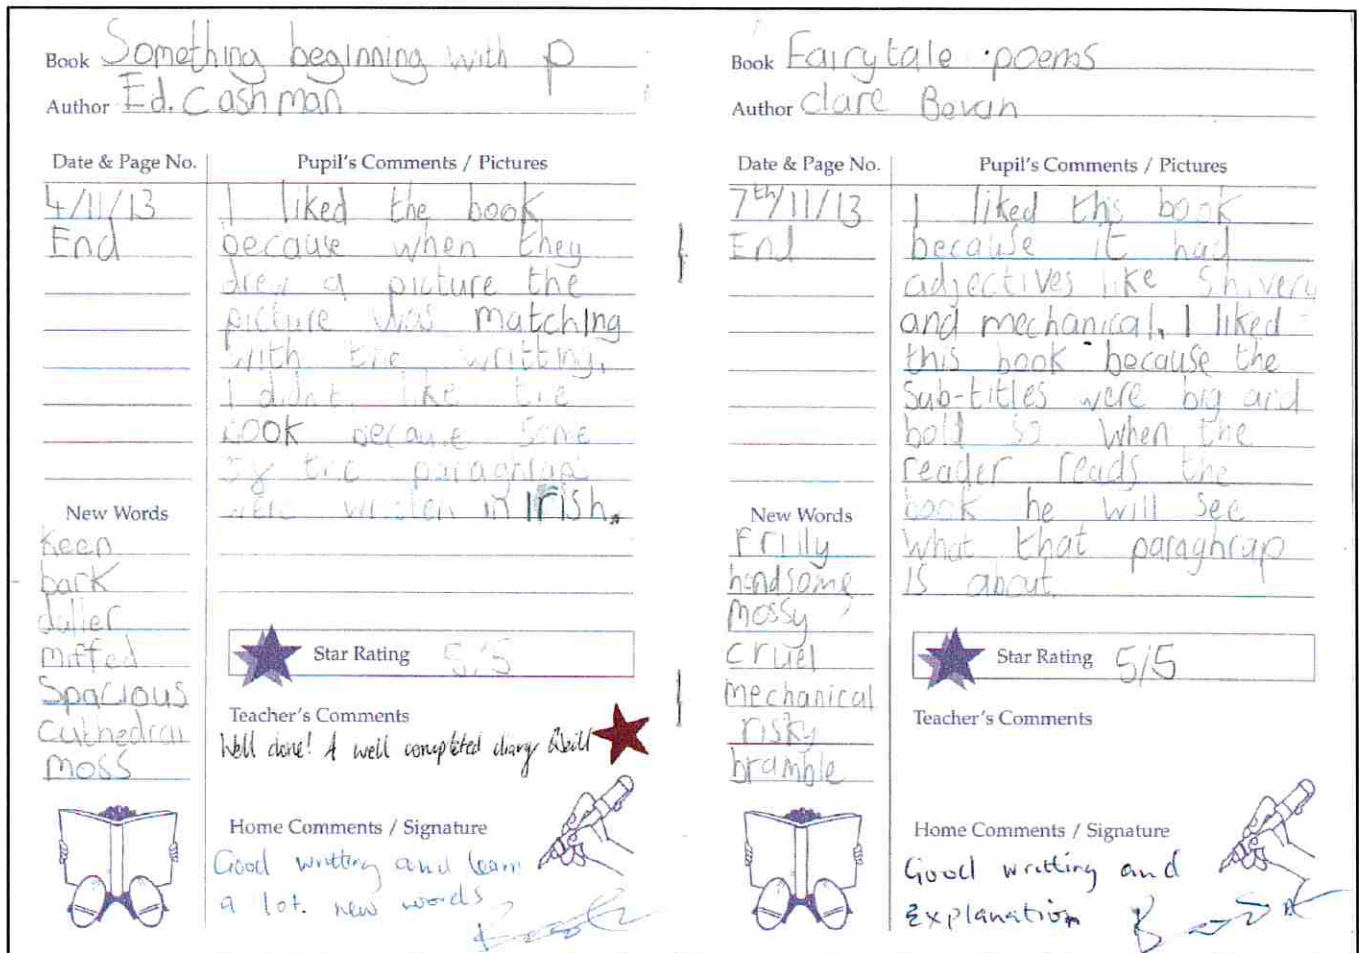 Book Something beginning with p
Author Ed. Cashman
Date & Page No.
Pupil's Comments / Pictures
4/11/13
End
I liked the book
because when they
drew a picture the
picture was matching
with the writting.
I didn't like the
book because some
of the paraghrap
were written in Irish.
New Words
keen
bark
dalier
miffed
Spacious
Cathedral
moss
Star Rating 5/5
Teacher's Comments
Well done! A well completed diary
Home Comments / Signature
Good writting and learn
a lot. new words
Book Fairytale poems
Author Clare Bevan
Date & Page No.
Pupil's Comments / Pictures
7th/11/13
End
I liked this book
because it had
adjectives like Shivery
and mechanical. I liked
this book because the
Sub-titles were big and
bold so when the
reader reads the
book he will see
what that paraghrap
is about.
New Words
Frilly
handsome
mossy
cruel
mechanical
risky
bramble
Star Rating 5/5
Teacher's Comments
Home Comments / Signature
Good writting and
Explanation